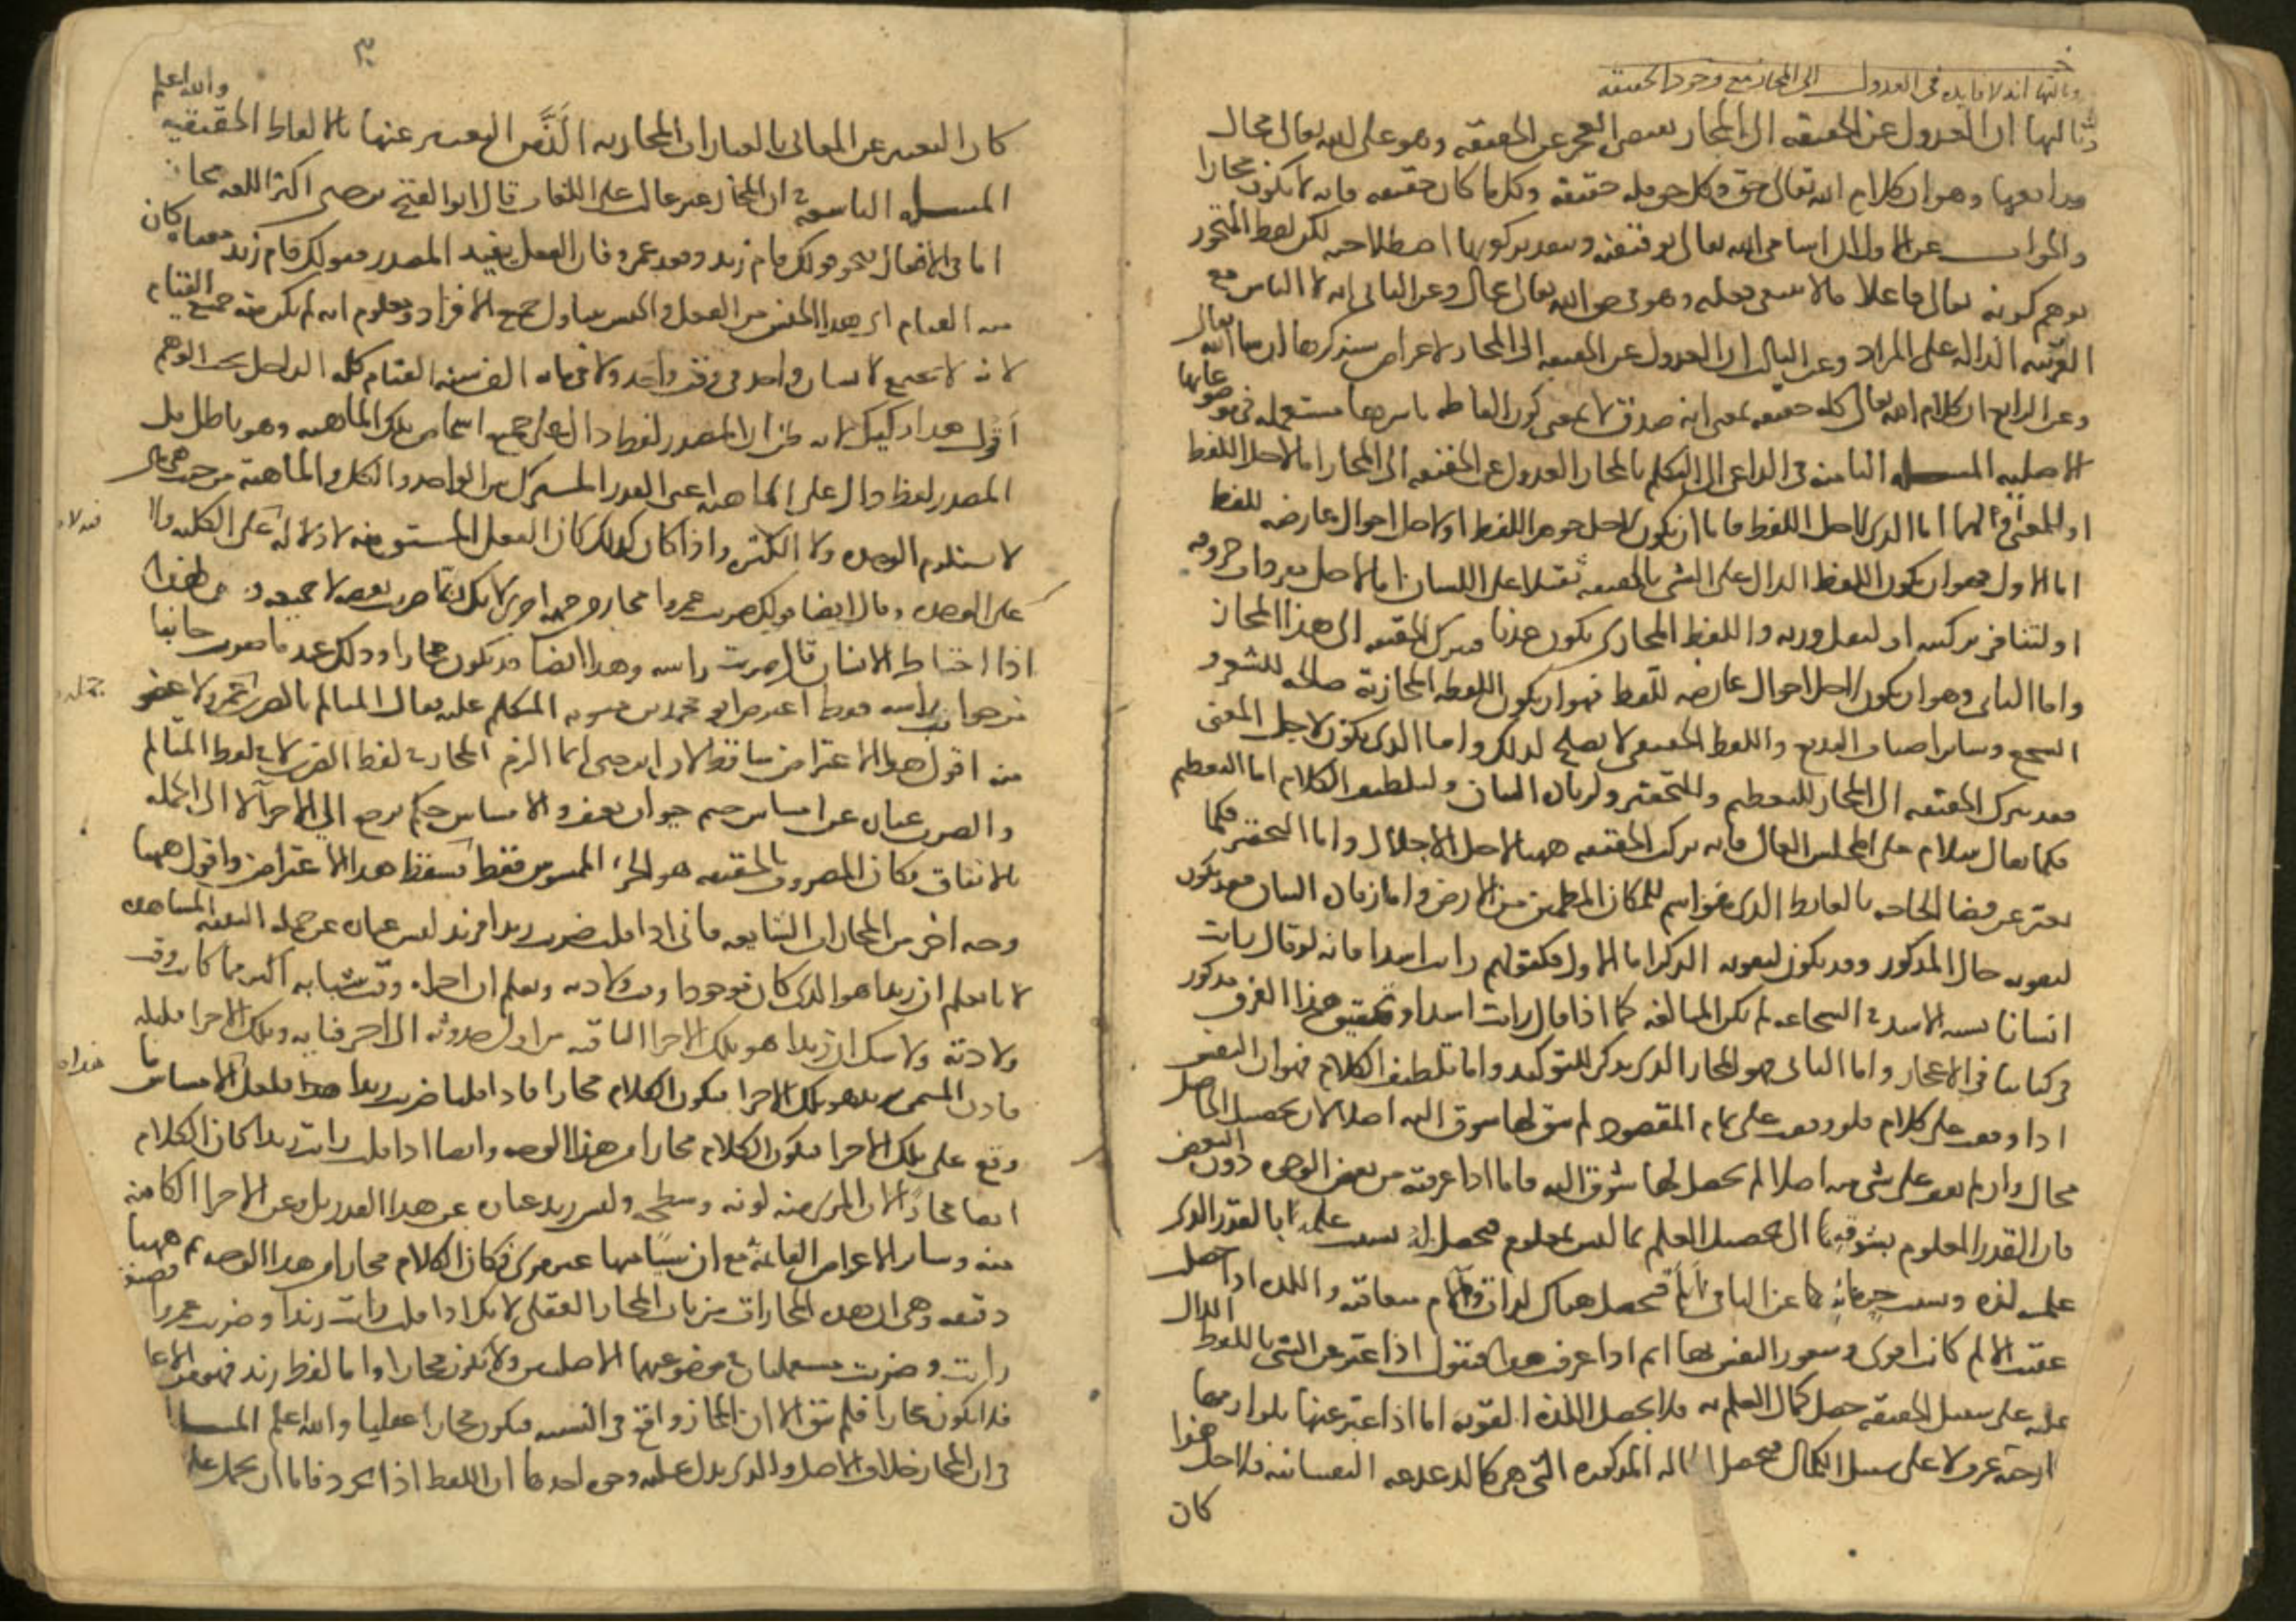 وثالثها انه لا فايده فى العدول الى المجاز مع وجود الحقيقه
وثالثها ان العدول عن الحقيقه الى المجاز يقتضى العجز عن الحقيقه وهو على الله تعالى محال
ورابعها وهو ان كلام الله تعالى حق وكل حق فله حقيقه وكل ما كان حقيقه فانه لا يكون مجازا
والجواب عن الاول ان اسامى الله تعالى توقيفيه وبتقدير كونها اصطلاحيه لكن لفظ المتجوز
يوهم كونه تعالى فاعلا ما لا ينبغى فعله وهو فى حق الله تعالى محال وعن الثانى انه لا التباس مع
القرينه الداله على المراد وعن الثالث ان العدول عن الحقيقه الى المجاز لاغراض سنذكرها ان شا الله تعالى
وعن الرابع ان كلام الله تعالى كله حقيقه بمعنى انه صدق لا بمعنى كون الفاظه باسرها مستعمله فى موضوعاتها
الاصليه المسله الثامنه فى الداعى الى التكلم بالمجاز العدول عن الحقيقه الى المجاز اما لاجل اللفظ
او المعنى او لهما اما الذى لاجل اللفظ فاما ان يكون لاجل جوهر اللفظ او لاجل احوال عارضه للفظ
اما الاول فهو ان يكون اللفظ الدال على الشى بالحقيقه ثقيلا على اللسان اما لاجل مفردات حروفه
او لتنافر تركيبه او لثقل وزنه واللفظ المجازى يكون عذبا فيترك الحقيقه الى هذا المجاز
واما الثانى وهو ان يكون لاجل احوال عارضه للفظ فهو ان يكون اللفظه المجازية صالحه للشعر و
السجع وساير اصناف البديع واللفظ الحقيقى لا يصلح لذلك واما الذى يكون لاجل المعنى
فقد يترك الحقيقه الى المجاز للتعظيم والتحقير ولزيادة البيان ولتلطيف الكلام اما التعظيم
فكما يقال سلام على المجلس العالى فانه ترك الحقيقه ههنا لاجل الاجلال واما التحقير فكما
يعبر عن قضا الحاجه بالغايط الذى هو اسم للمكان المطمين من الارض واما زيادة البيان فقد يكون
لتقويه حال المذكور وقد يكون لتقويه الذكر اما الاول فكقولهم رايت اسدا فانه لو قال رايت
انسانا يشبه الاسد فى الشجاعه لم يكن المبالغه كما اذا قال رايت اسدا وتحقيق هذا الفرق مذكور
فى كتابنا فى الاعجاز واما الثانى فهو المجاز الذى يذكر للتوكيد واما تلطيف الكلام فهو ان النفس
اذا وقفت على كلام فلو وقفت على تمام المقصود لم يبق لها شوق اليه اصلا لان تحصيل الحاصل
محال وان لم تقف على شى منه اصلا لم يحصل لها شوق اليه فاما اذا عرفته من بعض الوجوه دون البعض
فان القدر المعلوم يشوقها الى تحصيل العلم بما ليس بمعلوم فيحصل لها بسبب علمها بالقدر الذى
علمته لذه وبسبب حرمانها عن الباقى الم فيحصل هناك لذات والام متعاقبه واللذه اذا حصلت
عقيب الالم كانت اقوى وشعور النفس بها اتم اذا عرفت هذا فنقول اذا عبر عن الشى باللفظ الدال
عليه على سبيل الحقيقه حصل كمال العلم به فلا يحصل اللذة القويه اما اذا عبر عنها بلوازمها
الخارجيه عرف لا على سبيل الكمال فيحصل الحاله المذكوره التى هى كالدغدغه النفسانيه فلاجل هذا
كان
كان التعبير عن المعانى بالعبارات المجازيه الذ من التعبير عنها بالالفاظ الحقيقيه والله اعلم
المسله التاسعه فى ان المجاز غير غالب على اللغات قال ابو الفتح بن جنى اكثر اللغه مجاز
اما فى الافعال فنحو قولك قام زيد وقعد عمرو فان الفعل يفيد المصدر فقولك قام زيد معناه كان
منه القيام اى هذا الجنس من الفعل والجنس يتناول جميع الافراد ومعلوم انه لم يكن منه جميع القيام
لانه لا يجتمع لانسان واحد فى وقت واحد ولا فى مايه الف سنه القيام كله الداخل تحت الوهم
اقول هذا ركيك لانه ظن ان المصدر لفظ دال على جميع اشخاص تلك الماهيه وهو باطل بل
المصدر لفظ دال على الماهيه اعنى القدر المشترك بين الواحد والكل والماهية من حيث هى هى
لا يستلزم الوحده ولا الكثره واذا كان كذلك كان الفعل المشتق منه لا دلاله له على الكثره ولا
على الوحده وقال ايضا قولك ضربت عمروا مجاز من جهه اخرى لانك انما ضربت بعضه لا جميعه ولهذا
اذا احتاط الانسان قال ضربت راسه وهذا ايضا قد يكون مجازا وذلك عند ما ضربت جانبا
من جوانب راسه فقط اعترض ابو محمد بن متويه المتكلم عليه فقال المتالم بالضرب عمرو لا عضو
منه اقول هذا الاعتراض ساقط لان ابن جنى انما الزم المجاز فى لفظ الضرب لا فى لفظ المتالم
والضرب عباره عن امساس جسم حيوان بعنف والامساس حكم يرجع الى الاجزا لا الى الجمله
بالاتفاق فكان المضروب بالحقيقه هو الجزء الممسوس فقط فسقط هذا الاعتراض واقول ههنا
وجه اخر من المجازات الشايعه فانى اذا قلت ضربت زيدا فزيد ليس عباره عن جمله البنيه المشاهده
لانا نعلم ان زيدا هو الذى كان موجودا وقت ولادته ونعلم ان اجزاه وقت شبابه اكثر مما كانت وقت
ولادته ولا شك ان زيدا هو تلك الاجزا الباقيه من اول حدوثه الى اخر فنايه وتلك الاجزا قليله
فاذن المسمى بزيد هو تلك الاجزا فيكون الكلام مجازا فاذا قلنا ضربت زيدا فلعل الامساس ما
وقع على تلك الاجزا فيكون الكلام مجازا من هذا الوجه وايضا اذا قلت رايت زيدا كان الكلام
ايضا مجازا لان المرى منه لونه وسطحه وليس زيد عباره عن هذا القدر بل وعن الاجزا الكامنه
منه وساير الاعراض القايمة مع ان شيئا منها غير مرى فكان الكلام مجازا من هذا الوجه ثم ههنا
دقيقه وهى ان هذه المجازات من باب المجاز العقلى لانك اذا قلت رايت زيدا وضربت عمروا فصيغه
رايت وضربت مستعملتان فى موضوعيهما الاصليين ولا يكون مجازا واما لفظ زيد فهو من الاعلام
فلا يكون مجازا فلم يبق الا ان المجاز واقع فى النسبه فيكون مجازا عقليا والله اعلم المسله
فى ان المجاز خلاف الاصل والذى يدل عليه وجوه احدها ان اللفظ اذا تجرد فاما ان يحمل على